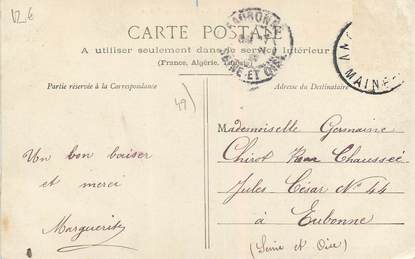 12,€
CARTE POSTALE
A utiliser seulement dans le service intérieur
(France, Algérie,
SEINE-ET-OISE
MAINE
Partie réservée à la Correspondance
Adresse du Destinataire
49)
Un bon baiser
et merci
Marguerite
Mademoiselle Germaine
Chirot Chaussée
Jules César No 44
à
Eubonne
(Seine et Oise)